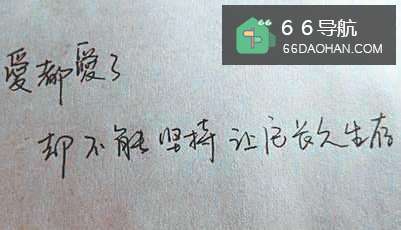 66导航
66DAOHAN.COM
愛都愛了
却不能坚持让它长久生存